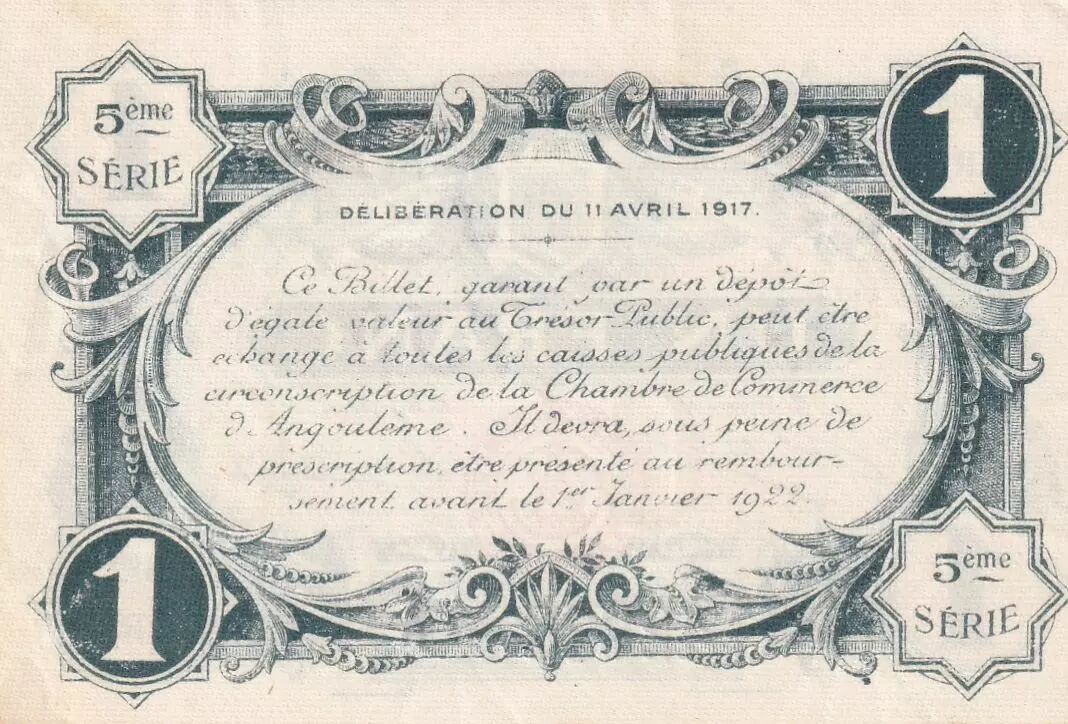 5ème
SÉRIE
1
DÉLIBÉRATION DU 11 AVRIL 1917.
Ce Billet, garant par un dépôt
d'égale valeur au Trésor Public, peut être
échangé à toutes les caisses publiques de la
circonscription de la Chambre de Commerce
d'Angoulême. Il devra, sous peine de
prescription, être présenté au rembour-
sement avant le 1er Janvier 1922.
1
5ème
SÉRIE